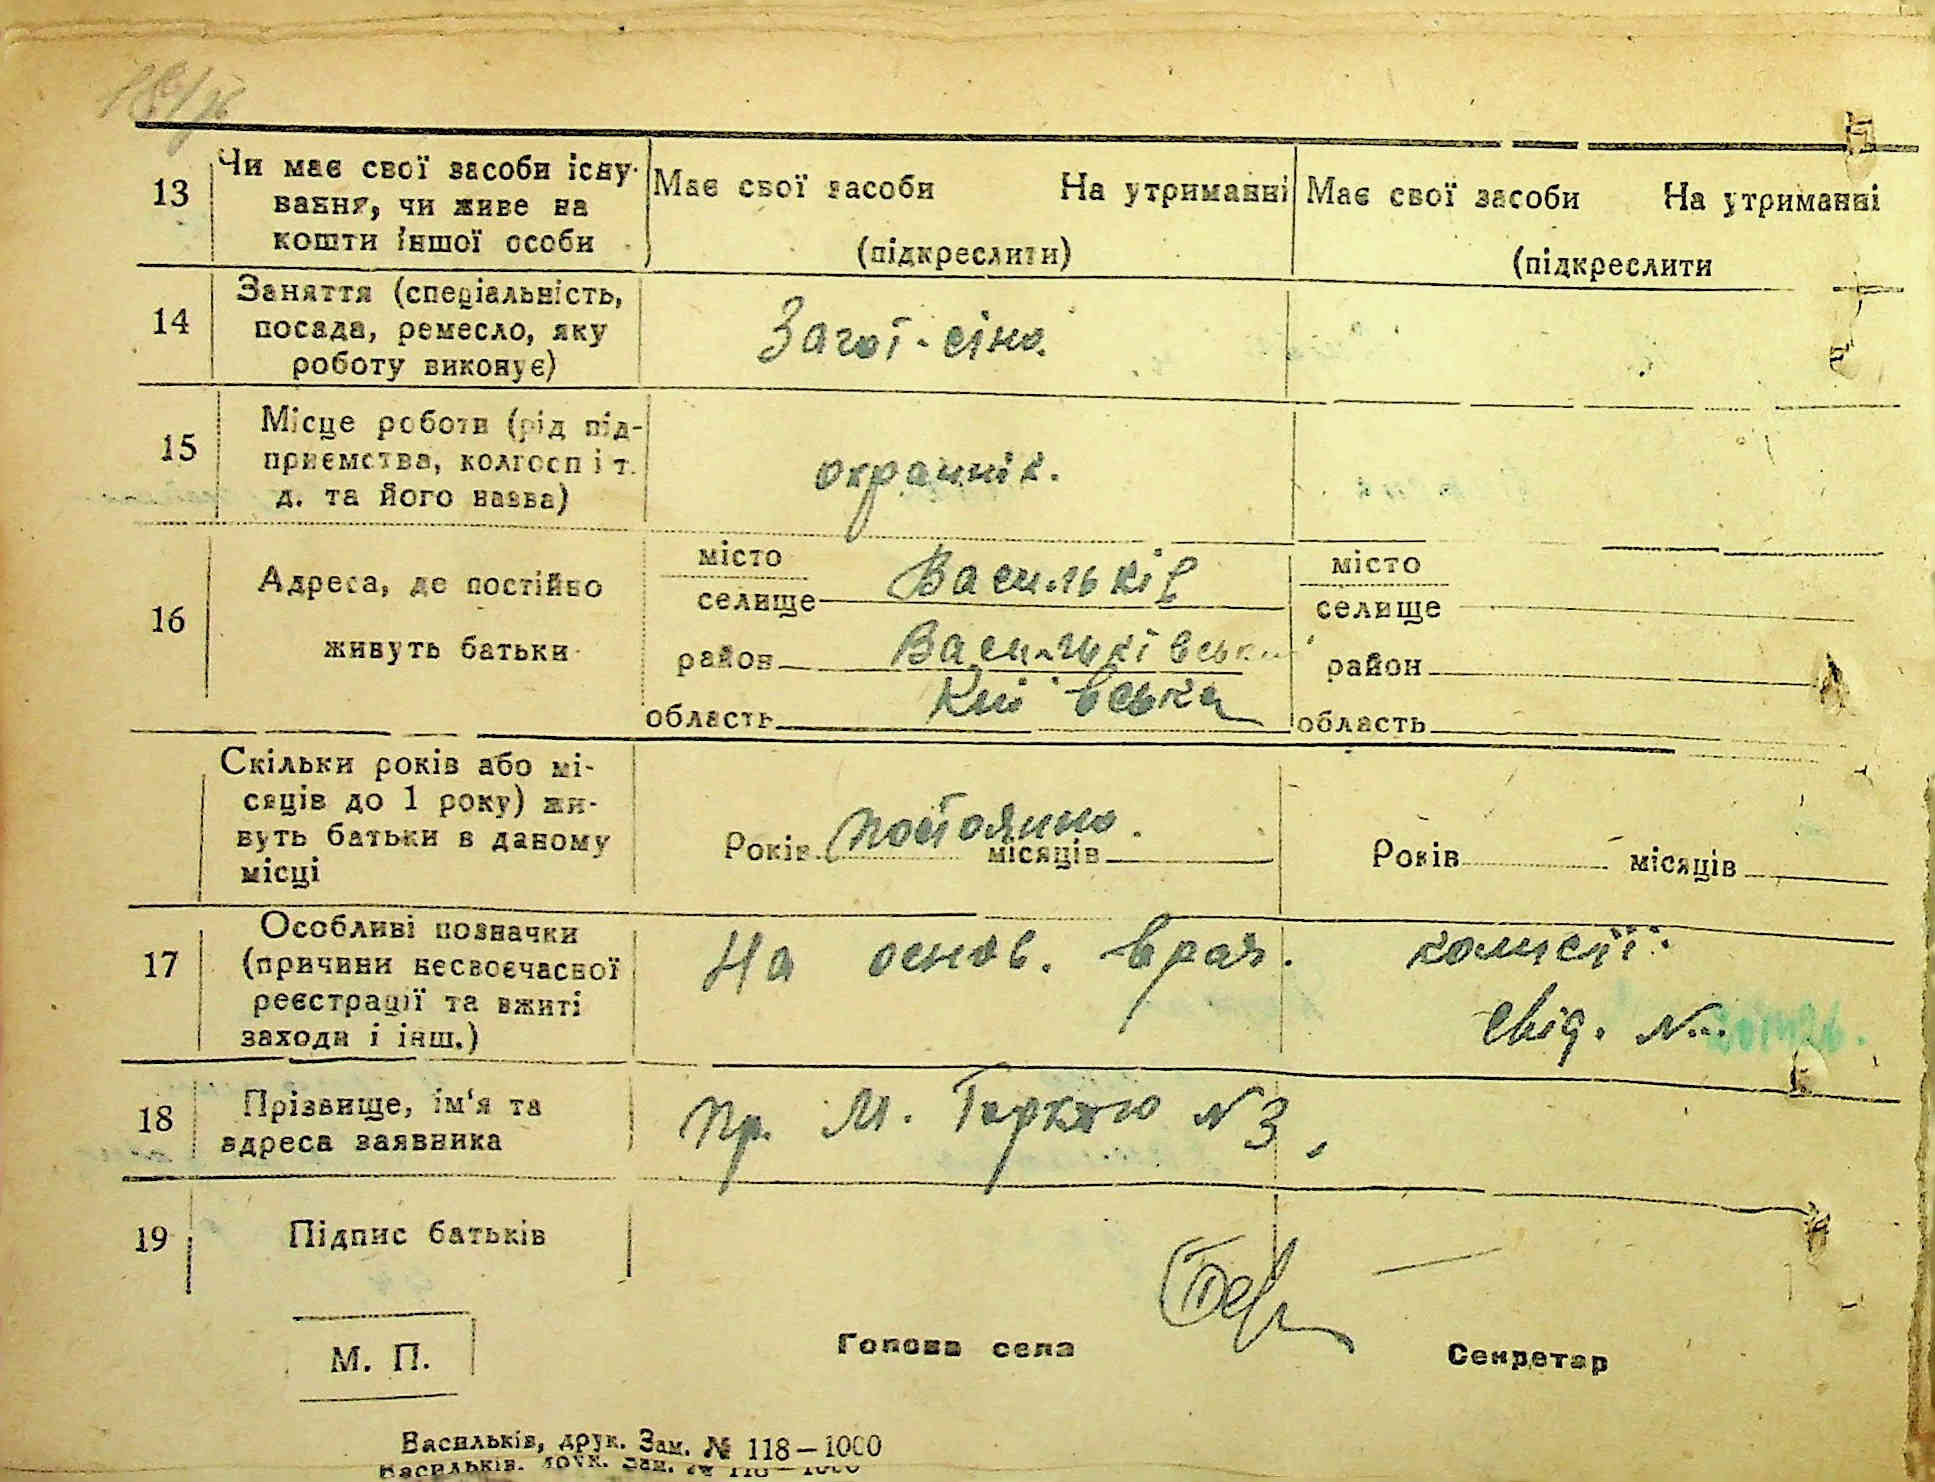 13
Чи має свої засоби існу-
вання, чи живе на
кошти іншої особи
Має свої засоби На утриманні
(підкреслити)
Має свої засоби На утриманні
(підкреслити
14
Заняття (спеціальність,
посада, ремесло, яку
роботу виконує)
Загот-сіно.
15
Місце роботи (рід під-
приємства, колгосп і т.
д. та його назва)
охраннік.
16
Адреса, де постійно
живуть батьки
місто
селище Васильків
район Васильківський
область Київська
місто
селище
район
область
Скільки років або мі-
сяців до 1 року) жи-
вуть батьки в даному
місці
Років постоянно. місяців
Років місяців
17
Особливі позначки
(причини несвоєчасної
реєстрації та вжиті
заходи і інш.)
На основ. врач. комісії
свід. №
18
Прізвище, ім'я та
адреса заявника
пр. М. Горького №3,
19
Підпис батьків
М. П.
Голова села
Секретар
Васильків, друк. Зам. № 118—1000
Васильків, друк. Зам. № 118—1000